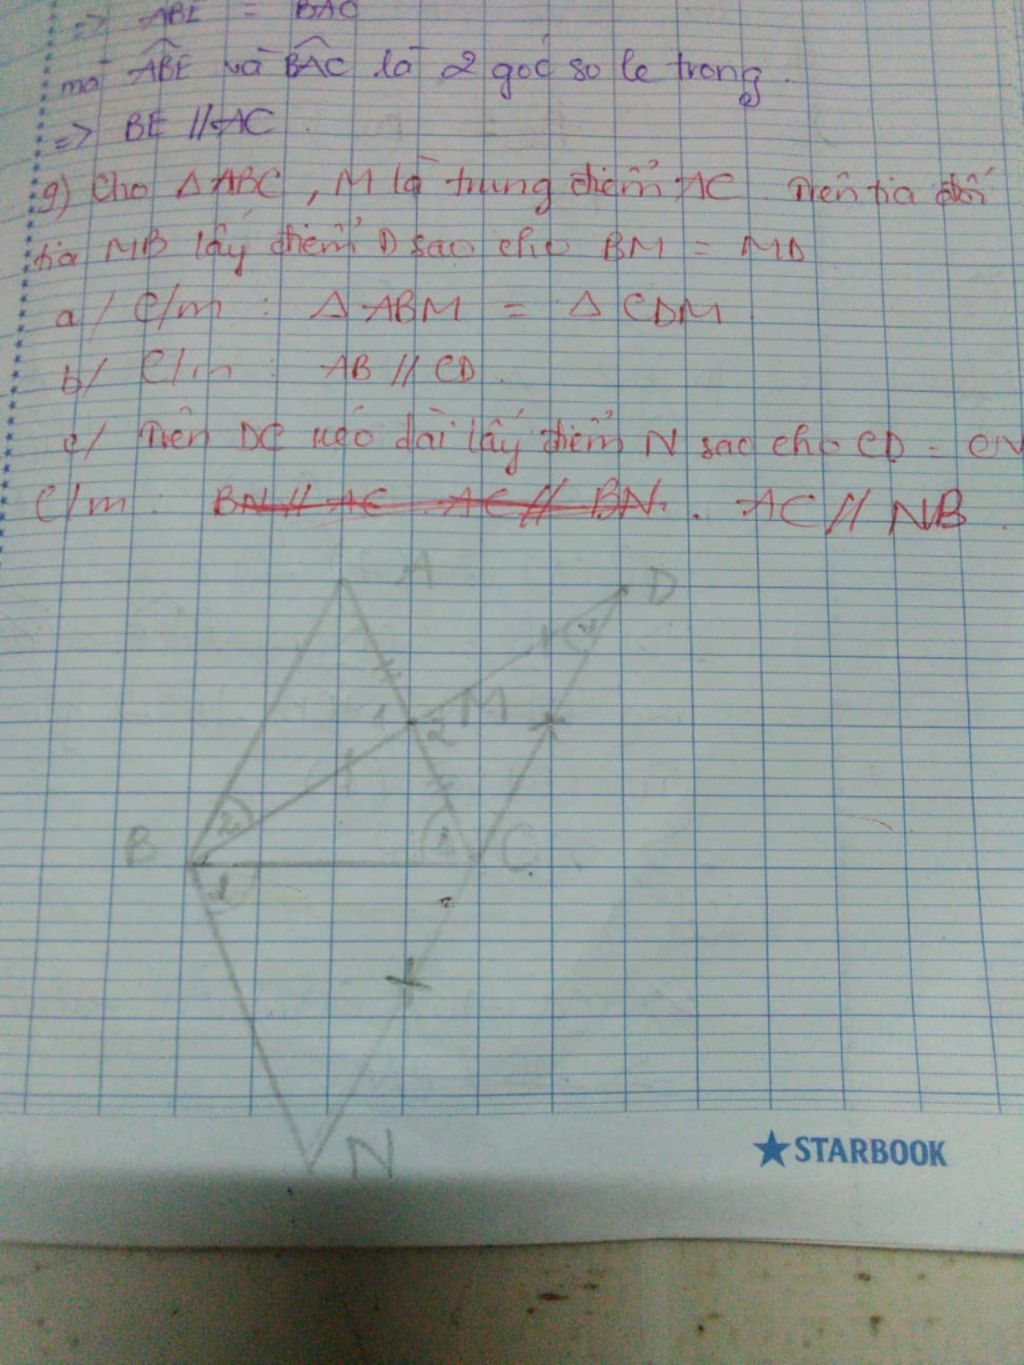 => ABE = BAC
mà ABE và BAC là 2 góc so le trong.
=> BE // AC.
9) Cho △ABC, M là trung điểm AC. Trên tia đối
tia MB lấy điểm D sao cho BM = MD
a/ C/m : △ ABM = △ CDM
b/ C/m : AB // CD.
c/ Trên DC kéo dài lấy điểm N sao cho CD = CN
C/m : BN // AC AC // BN. AC // NB.
A
D
M
1
2
B
2
C
2
1
N
STARBOOK